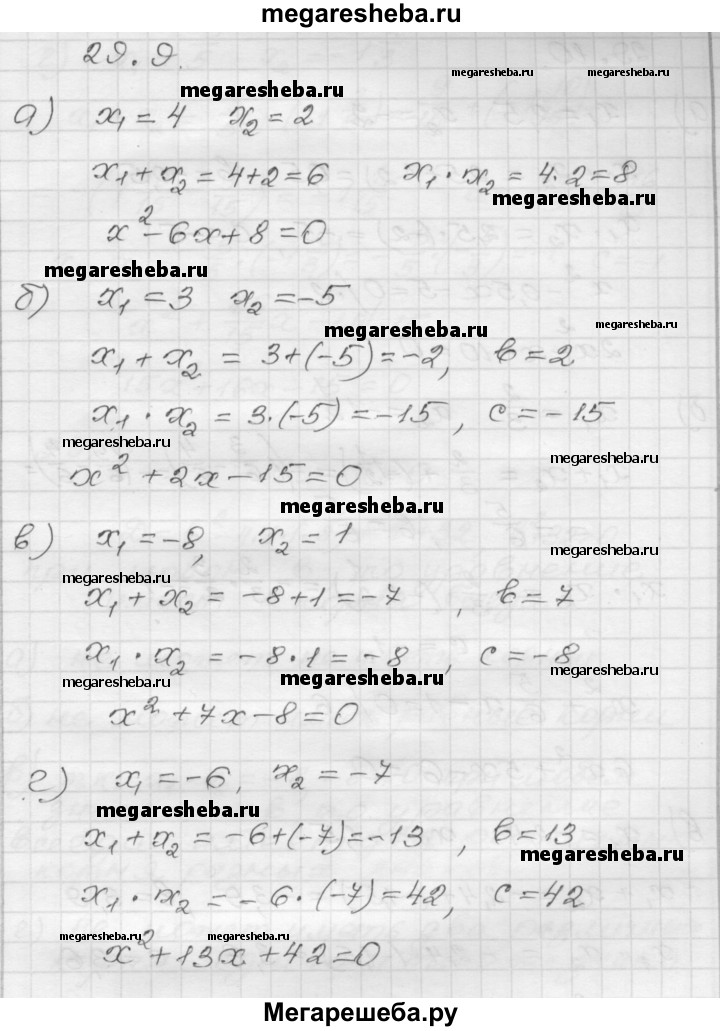 megaresheba.ru
29.9.
megaresheba.ru megaresheba.ru megaresheba.ru
а) x₁ = 4 x₂ = 2
x₁ + x₂ = 4+2=6 x₁ · x₂ = 4·2=8
megaresheba.ru
x² - 6x + 8 = 0
megaresheba.ru
б) x₁ = 3 x₂ = -5
megaresheba.ru megaresheba.ru
x₁ + x₂ = 3+(-5)=-2, b=2
x₁ · x₂ = 3·(-5)=-15, c=-15
megaresheba.ru megaresheba.ru
x² + 2x - 15 = 0
megaresheba.ru
в) x₁ = -8, x₂ = 1
megaresheba.ru megaresheba.ru
x₁ + x₂ = -8+1=-7, b=7
x₁ · x₂ = -8·1=-8, c=-8
megaresheba.ru megaresheba.ru megaresheba.ru
x² + 7x - 8 = 0
г) x₁ = -6, x₂ = -7
megaresheba.ru
x₁ + x₂ = -6+(-7)=-13, b=13
megaresheba.ru
x₁ · x₂ = -6·(-7)=42, c=42
megaresheba.ru megaresheba.ru megaresheba.ru
x² + 13x + 42 = 0
Мегарешеба.ру